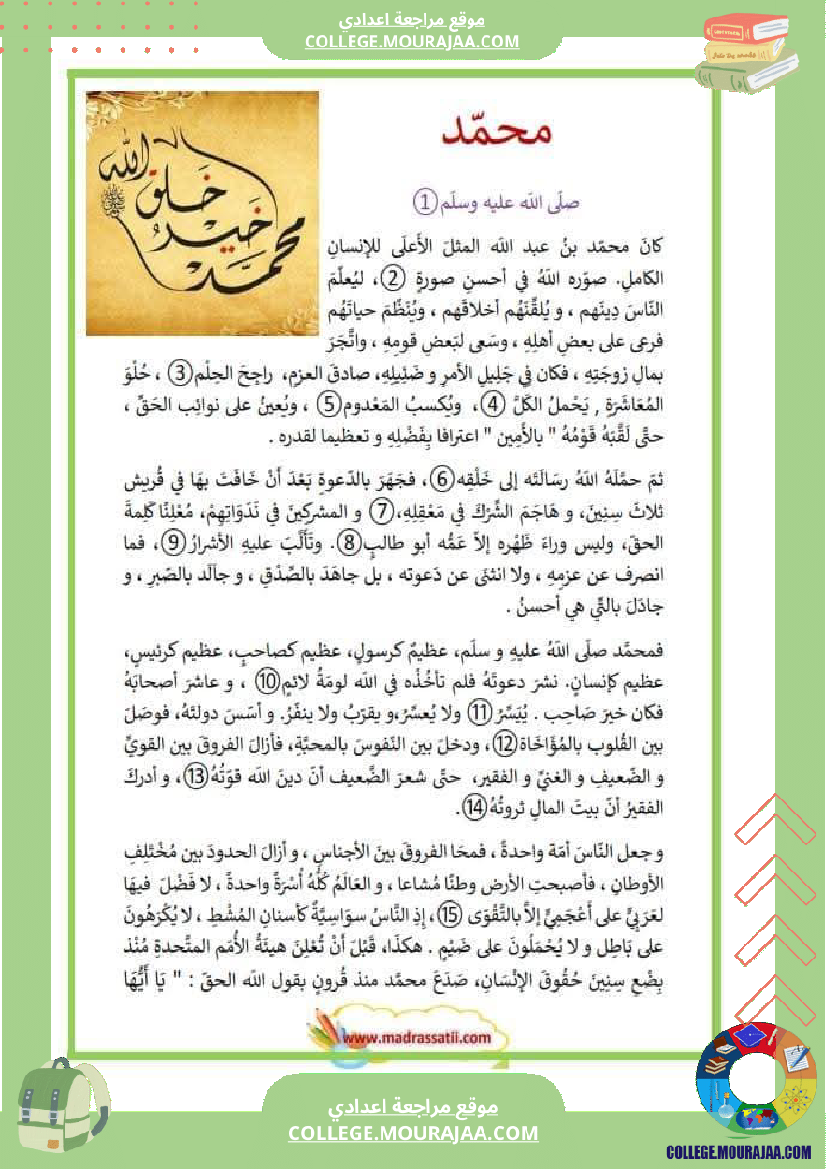 موقع مراجعة اعدادي
COLLEGE.MOURAJAA.COM
محمّد
صلّى الله عليه وسلّم ①
محمد
خير
خلق
الله
كانَ محمّد بنُ عبد الله المثلَ الأَعلَى للإنسانِ
الكاملِ. صوّره اللهُ في أحسنِ صورةٍ ② ، ليُعلّمَ
النّاسَ دِينَهم ، و يُلقِّنَهُم أخلاقَهم ، ويُنَظِّمَ حياتَهُم
فرعى على بعضِ أهلِهِ ، وسَعى لبَعضِ قومِهِ ، واتَّجَرَ
بمالِ زوجَتِهِ ، فكان في جَلِيلِ الأمرِ و ضَئِيلِهِ، صادقَ العزمِ، راجِحَ الحِلْم③ ، حُلْوَ
المُعَاشَرَةِ , يَحْملُ الكَلَّ ④ ، ويُكسبُ المَعْدوم⑤ ، ويُعينُ على نوائِب الحَقِّ ،
حتَّى لَقَّبَهُ قَوْمُهُ " بالأَمِين " اعترافا بِفَضْلِهِ و تعظيما لقدره .
ثمَ حمّلَهُ اللهُ رسَالَتَه إلى خَلْقِه⑥ ، فجَهَرَ بالدّعوةِ بَعْدَ أنْ خَافَتَ بهَا في قُريش
ثلاثَ سِنِينَ، و هَاجَم الشِّرْكَ في مَعْقِلِهِ،⑦ و المشركِينَ في نَدَوَاتِهِمْ، مُعْلِنًا كَلِمةَ
الحقَ، وليس وراءَ ظَهْرِه إلاَّ عَمُّه أبو طالبٍ⑧ . وتَأَلَّبَ عليهِ الأشرارُ⑨ ، فما
انصرف عن عزمِهِ ، ولا انثنَى عن دَعوته ، بل جاهَدَ بالصِّدْقِ ، و جاَلَد بالصّبرِ ، و
جادَلَ بالتّي هي أحسنُ .
فمحمَّد صلّى اللهُ عليهِ و سلّم، عظيمٌ كرسولٍ، عظيم كصاحبٍ، عظيم كرئيسٍ،
عظيم كإنسانٍ. نشرَ دعوتَهُ فلم تأخُذْه في الله لومَةُ لائمٍ⑩ ، و عاشرَ أصحابَهُ
فكان خيرَ صَاحِب . يُيَسِّرُ ⑪ ولا يُعسِّرُ،و يقرّبُ ولا ينفّرُ. و أسَسَ دولتَهُ، فوصَلَ
بين القُلوب بالمُؤَاخَاة⑫ ، ودخلَ بين النّفوسَ بالمحبَّةِ، فأزالَ الفروقَ بين القويِّ
و الضّعيفِ و الغنيِّ و الفقيرِ، حتَّى شعرَ الضَّعيف أنَ دينَ الله قوّتُهُ⑬ ، و أدركَ
الفقيرُ أنّ بيتَ المالِ ثروتُهُ⑭ .
و جعل النّاسَ أمَة واحدةً ، فمحَا الفروقَ بينَ الأجناسِ ، و أزالَ الحدودَ بين مُخْتَلِفِ
الأوطانِ ، فأصبحتِ الأرض وطنًا مُشاعا ، و العَالَمُ كُلُّهُ أُسْرَةً واحدةً ، لا فَضْلَ فيهَا
لعَرَبِيٍّ على أعْجَمِيٍّ إلاَّ بالتَّقْوَى ⑮ ، إذِ النَّاسُ سوَاسِيَّةٌ كأسنانِ المُشْطِ ، لا يُكْرَهُونَ
على بَاطِل و لا يُحْمَلُونَ على ضَيْمٍ . هكذًا، قَبْلَ أنْ تُعْلِنَ هيئَةُ الأُمَم المتَّحدةِ مُنْذ
بِضْعِ سِنِينَ حُقُوقَ الإنْسَانِ، صَدَعَ محمَّد منذ قُرونٍ بقول الله الحقَ : " يَا أَيُّهَا
www.madrassatii.com
موقع مراجعة اعدادي
COLLEGE.MOURAJAA.COM
COLLEGE.MOURAJAA.COM